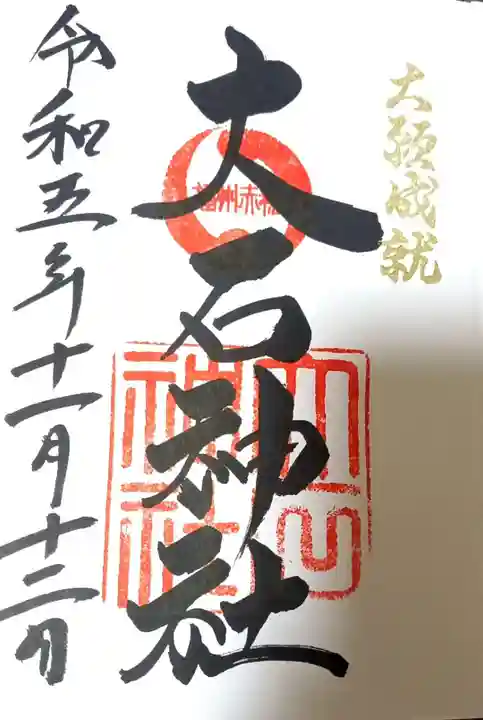 大願成就
播州赤穂
大石神社
大石神社
令和五年十一月十二日